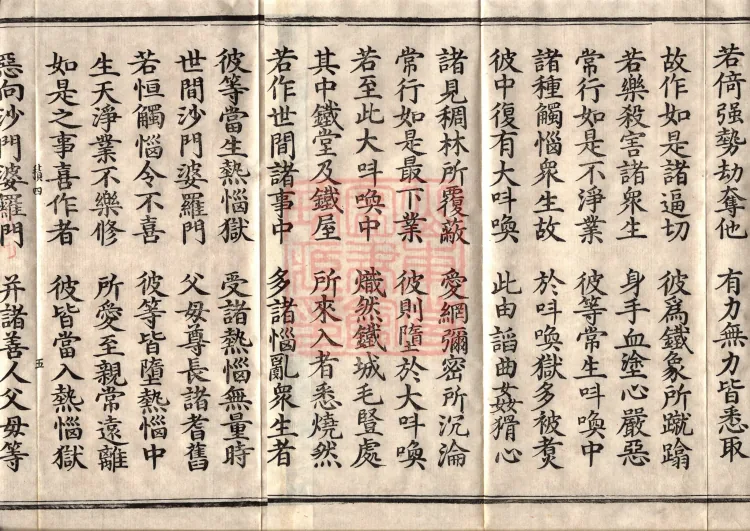 若倚强勢劫奪他 有力無力皆悉取
故作如是諸逼切 彼爲鐵象所蹴蹹
若樂殺害諸衆生 身手血塗心嚴惡
常行如是不淨業 彼等常生呌喚中
諸種觸惱衆生故 於呌喚獄多被煑
彼中復有大呌喚 此由諂曲姦猾心
諸見稠林所覆蔽 愛網彌密所沉淪
常行如是最下業 彼則墮於大呌喚
若至此大呌喚中 熾然鐵城毛豎處
其中鐵堂及鐵屋 所來入者悉燒然
若作世間諸事中 多諸惱亂衆生者
彼等當生熱惱獄 受諸熱惱無量時
世間沙門婆羅門 父母尊長諸耆舊
若恒觸惱令不喜 彼等皆墮熱惱中
生天淨業不樂修 所愛至親常遠離
如是之事喜作者 彼皆當入熱惱獄
四 五
惡向沙門婆羅門 幷諸善人父母等